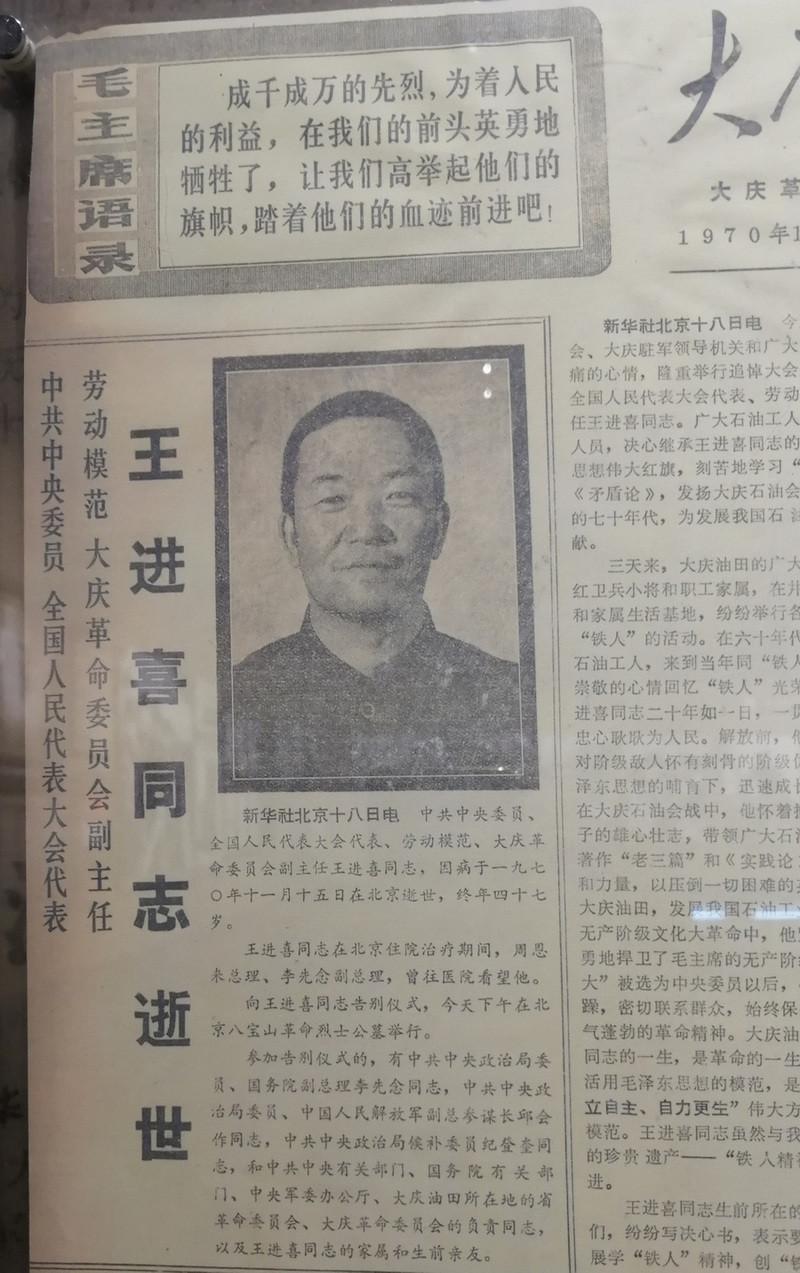 毛主席语录
成千成万的先烈，为着人民
的利益，在我们的前头英勇地
牺牲了，让我们高举起他们的
旗帜，踏着他们的血迹前进吧！
大庆
大庆革
1970年1
中共中央委员 全国人民代表大会代表
劳动模范 大庆革命委员会副主任
王进喜同志逝世
新华社北京十八日电 中共中央委员、
全国人民代表大会代表、劳动模范、大庆革
命委员会副主任王进喜同志，因病于一九七
〇年十一月十五日在北京逝世，终年四十七
岁。
王进喜同志在北京住院治疗期间，周恩
来总理、李先念副总理，曾往医院看望他。
向王进喜同志告别仪式，今天下午在北
京八宝山革命烈士公墓举行。
参加告别仪式的，有中共中央政治局委
员、国务院副总理李先念同志，中共中央政
治局委员、中国人民解放军副总参谋长邱会
作同志，中共中央政治局候补委员纪登奎同
志，和中共中央有关部门、国务院有关部
门、中央军委办公厅、大庆油田所在地的省
革命委员会、大庆革命委员会的负责同志，
以及王进喜同志的家属和生前亲友。
新华社北京十八日电 今
会、大庆驻军领导机关和广大
痛的心情，隆重举行追悼大会
全国人民代表大会代表、劳动
任王进喜同志。广大石油工人
人员，决心继承王进喜同志的
思想伟大红旗，刻苦地学习“
《矛盾论》，发扬大庆石油会
的七十年代，为发展我国石
献。
三天来，大庆油田的广大
红卫兵小将和职工家属，在井
和家属生活基地，纷纷举行各
“铁人”的活动。在六十年代
石油工人，来到当年同“铁人
崇敬的心情回忆“铁人”光荣
进喜同志二十年如一日，一贯
忠心耿耿为人民。解放前，他
对阶级敌人怀有刻骨的阶级仇
泽东思想的哺育下，迅速成长
在大庆石油会战中，他怀着
子的雄心壮志，带领广大石油
著作“老三篇”和《实践论》
和力量，以压倒一切困难的英
大庆油田，发展我国石油工业
无产阶级文化大革命中，他
勇地捍卫了毛主席的无产阶级
大”被选为中央委员以后，
躁，密切联系群众，始终保
气蓬勃的革命精神。大庆油
同志的一生，是革命的一生
活用毛泽东思想的模范，是
立自主、自力更生”伟大方
模范。王进喜同志虽然与我
的珍贵遗产——“铁人精神
进。
王进喜同志生前所在的
们，纷纷写决心书，表示要
展学“铁人”精神，创“铁